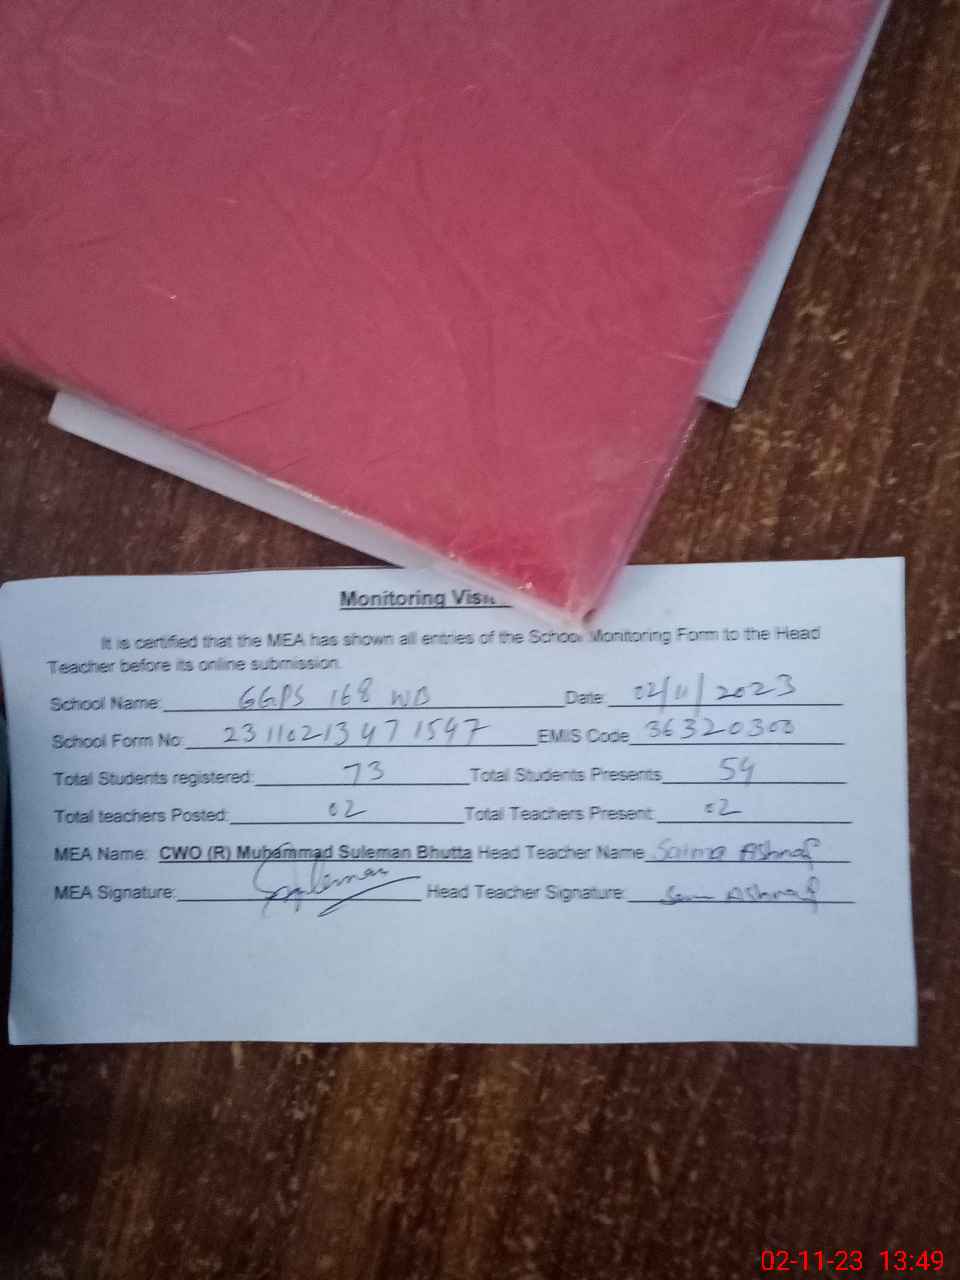 Monitoring Visit
It is certified that the MEA has shown all entries of the School Monitoring Form to the Head
Teacher before its online submission.
School Name: GGPS 168 WB Date: 02/11/2023
School Form No: 23110213471547 EMIS Code 36320300
Total Students registered: 73 Total Students Presents 54
Total teachers Posted: 02 Total Teachers Present: 02
MEA Name: CWO (R) Muhammad Suleman Bhutta Head Teacher Name Saima Ashraf
MEA Signature: Suleman Head Teacher Signature: Ashraf
02-11-23 13:49